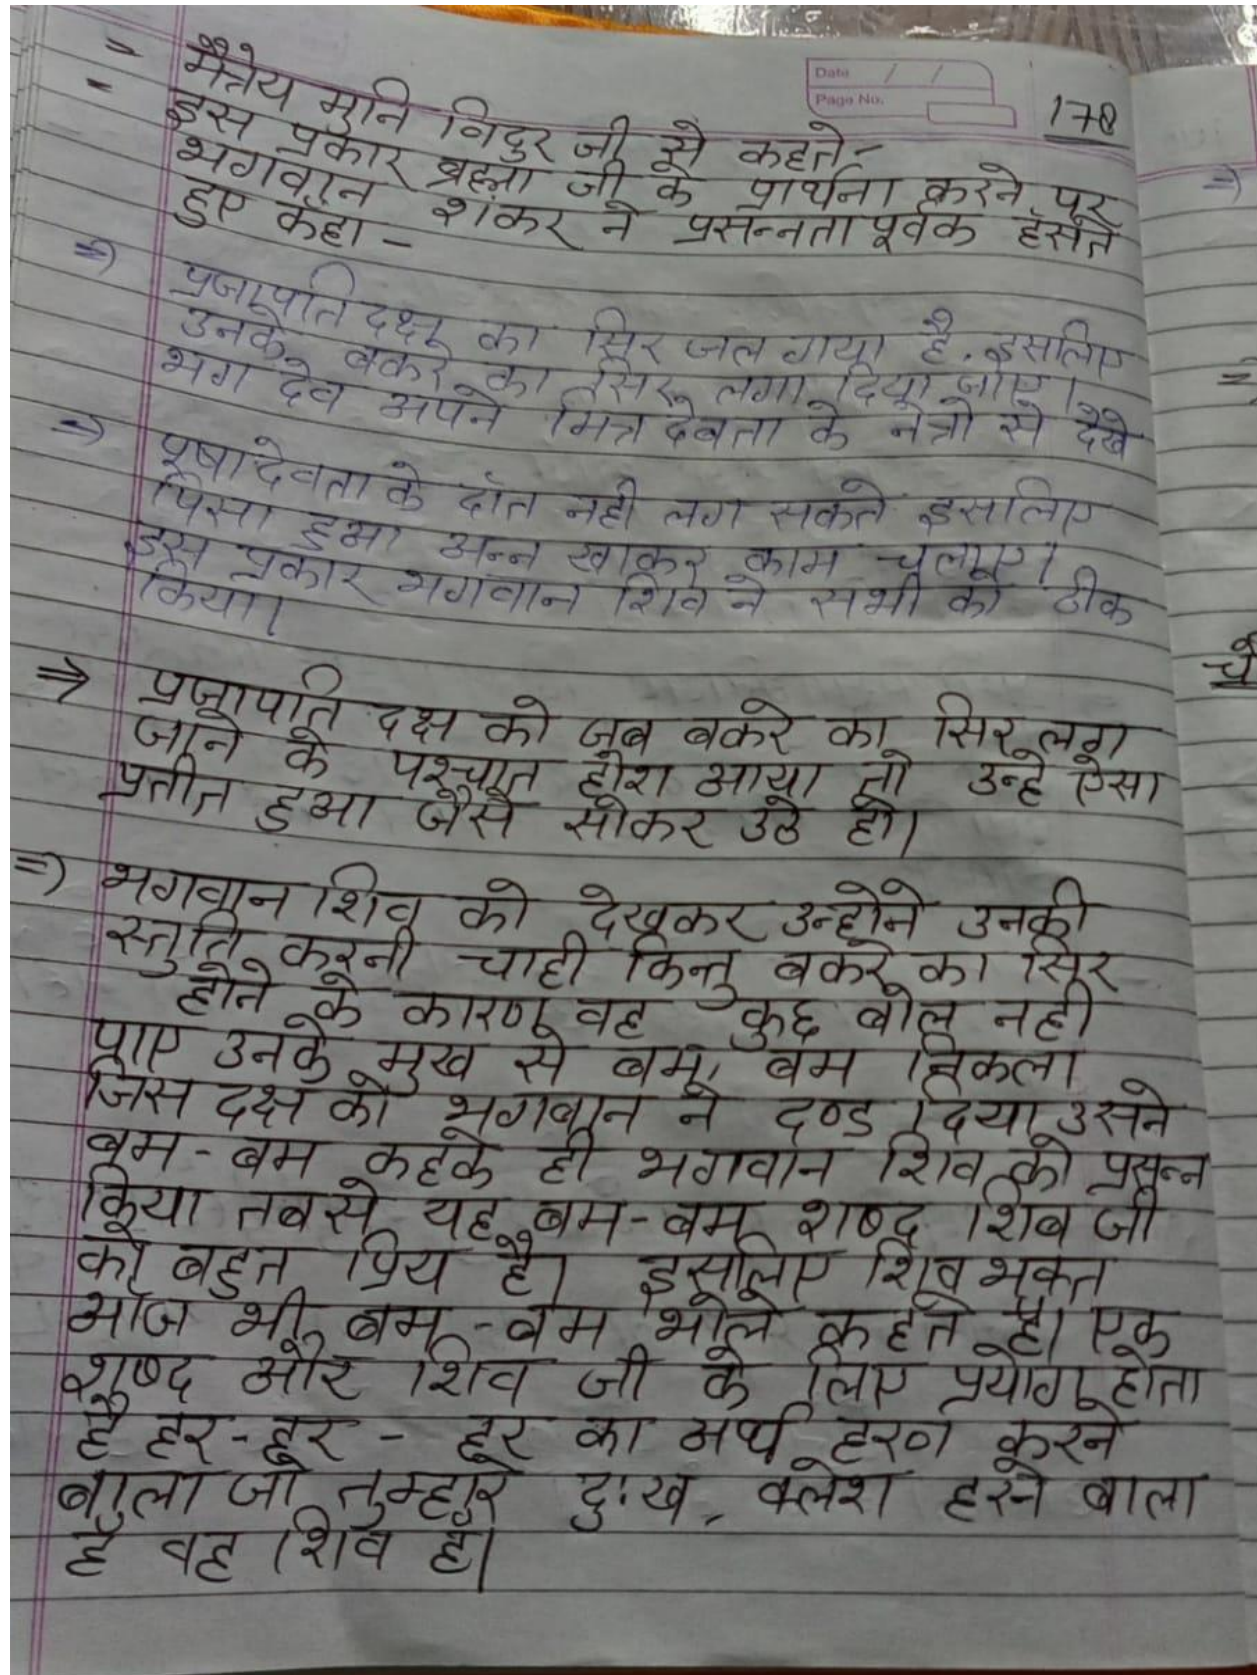 Date / /
Page No.
178
= मैत्रेय मुनि विदुर जी से कहते-
- इस प्रकार ब्रह्मा जी के प्रार्थना करने पर
भगवान शंकर ने प्रसन्नता पूर्वक हँसते
हुए कहा -
⇒ प्रजापति दक्ष का सिर जल गया है. इसलिए
उनके बकरे का सिर लगा दिया जाए।
भग देव अपने मित्र देवता के नेत्रो से देखे
⇒ पूषा देवता के दाँत नही लग सकते इसलिए
पिसा हुआ अन्न खाकर काम चलाए।
इस प्रकार भगवान शिव ने सभी को ठीक
किया।
⇒ प्रजापति दक्ष को जब बकरे का सिर लग
जाने के पश्चात होश आया तो उन्हे ऐसा
प्रतीत हुआ जैसे सोकर उठे हो।
⇒ भगवान शिव को देखकर उन्होने उनकी
स्तुति करनी चाही किन्तु बकरे का सिर
होने के कारण वह कुछ बोल नही
पाए उनके मुख से बम, बम निकला
जिस दक्ष को भगवान ने दण्ड दिया उसने
बम - बम कहके ही भगवान शिव को प्रसन्न
किया तबसे यह बम-बम शब्द शिव जी
को बहुत प्रिय है। इसलिए शिव भक्त
आज भी बम - बम भोले कहते है। एक
शब्द और शिव जी के लिए प्रयोग होता
है हर-हर - हर का अर्थ हरण करने
वाला जो तुम्हारे दु:ख, क्लेश हरने वाला
है वह शिव है।